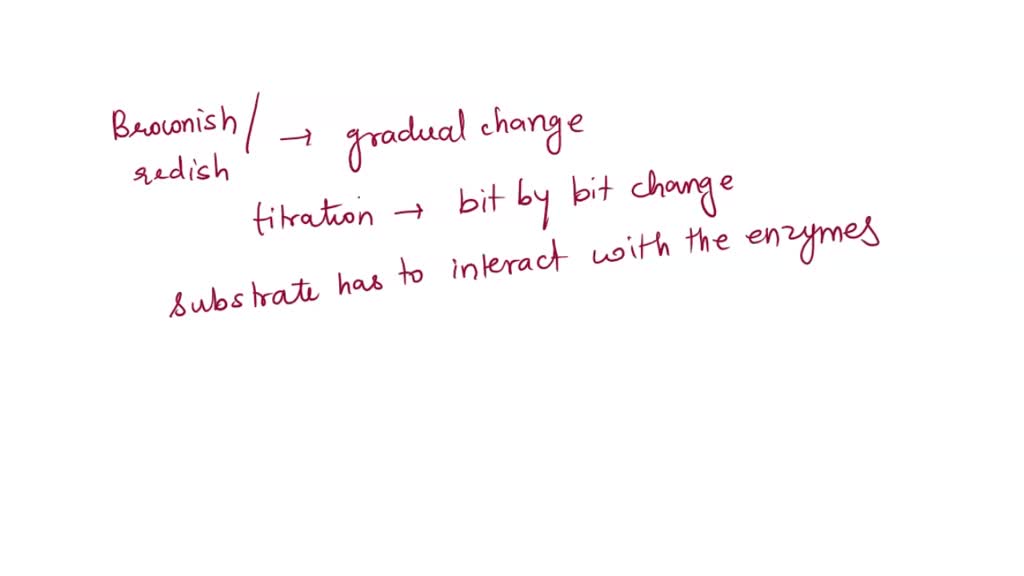 Brownish/ → gradual change
redish
titration → bit by bit change
substrate has to interact with the enzymes